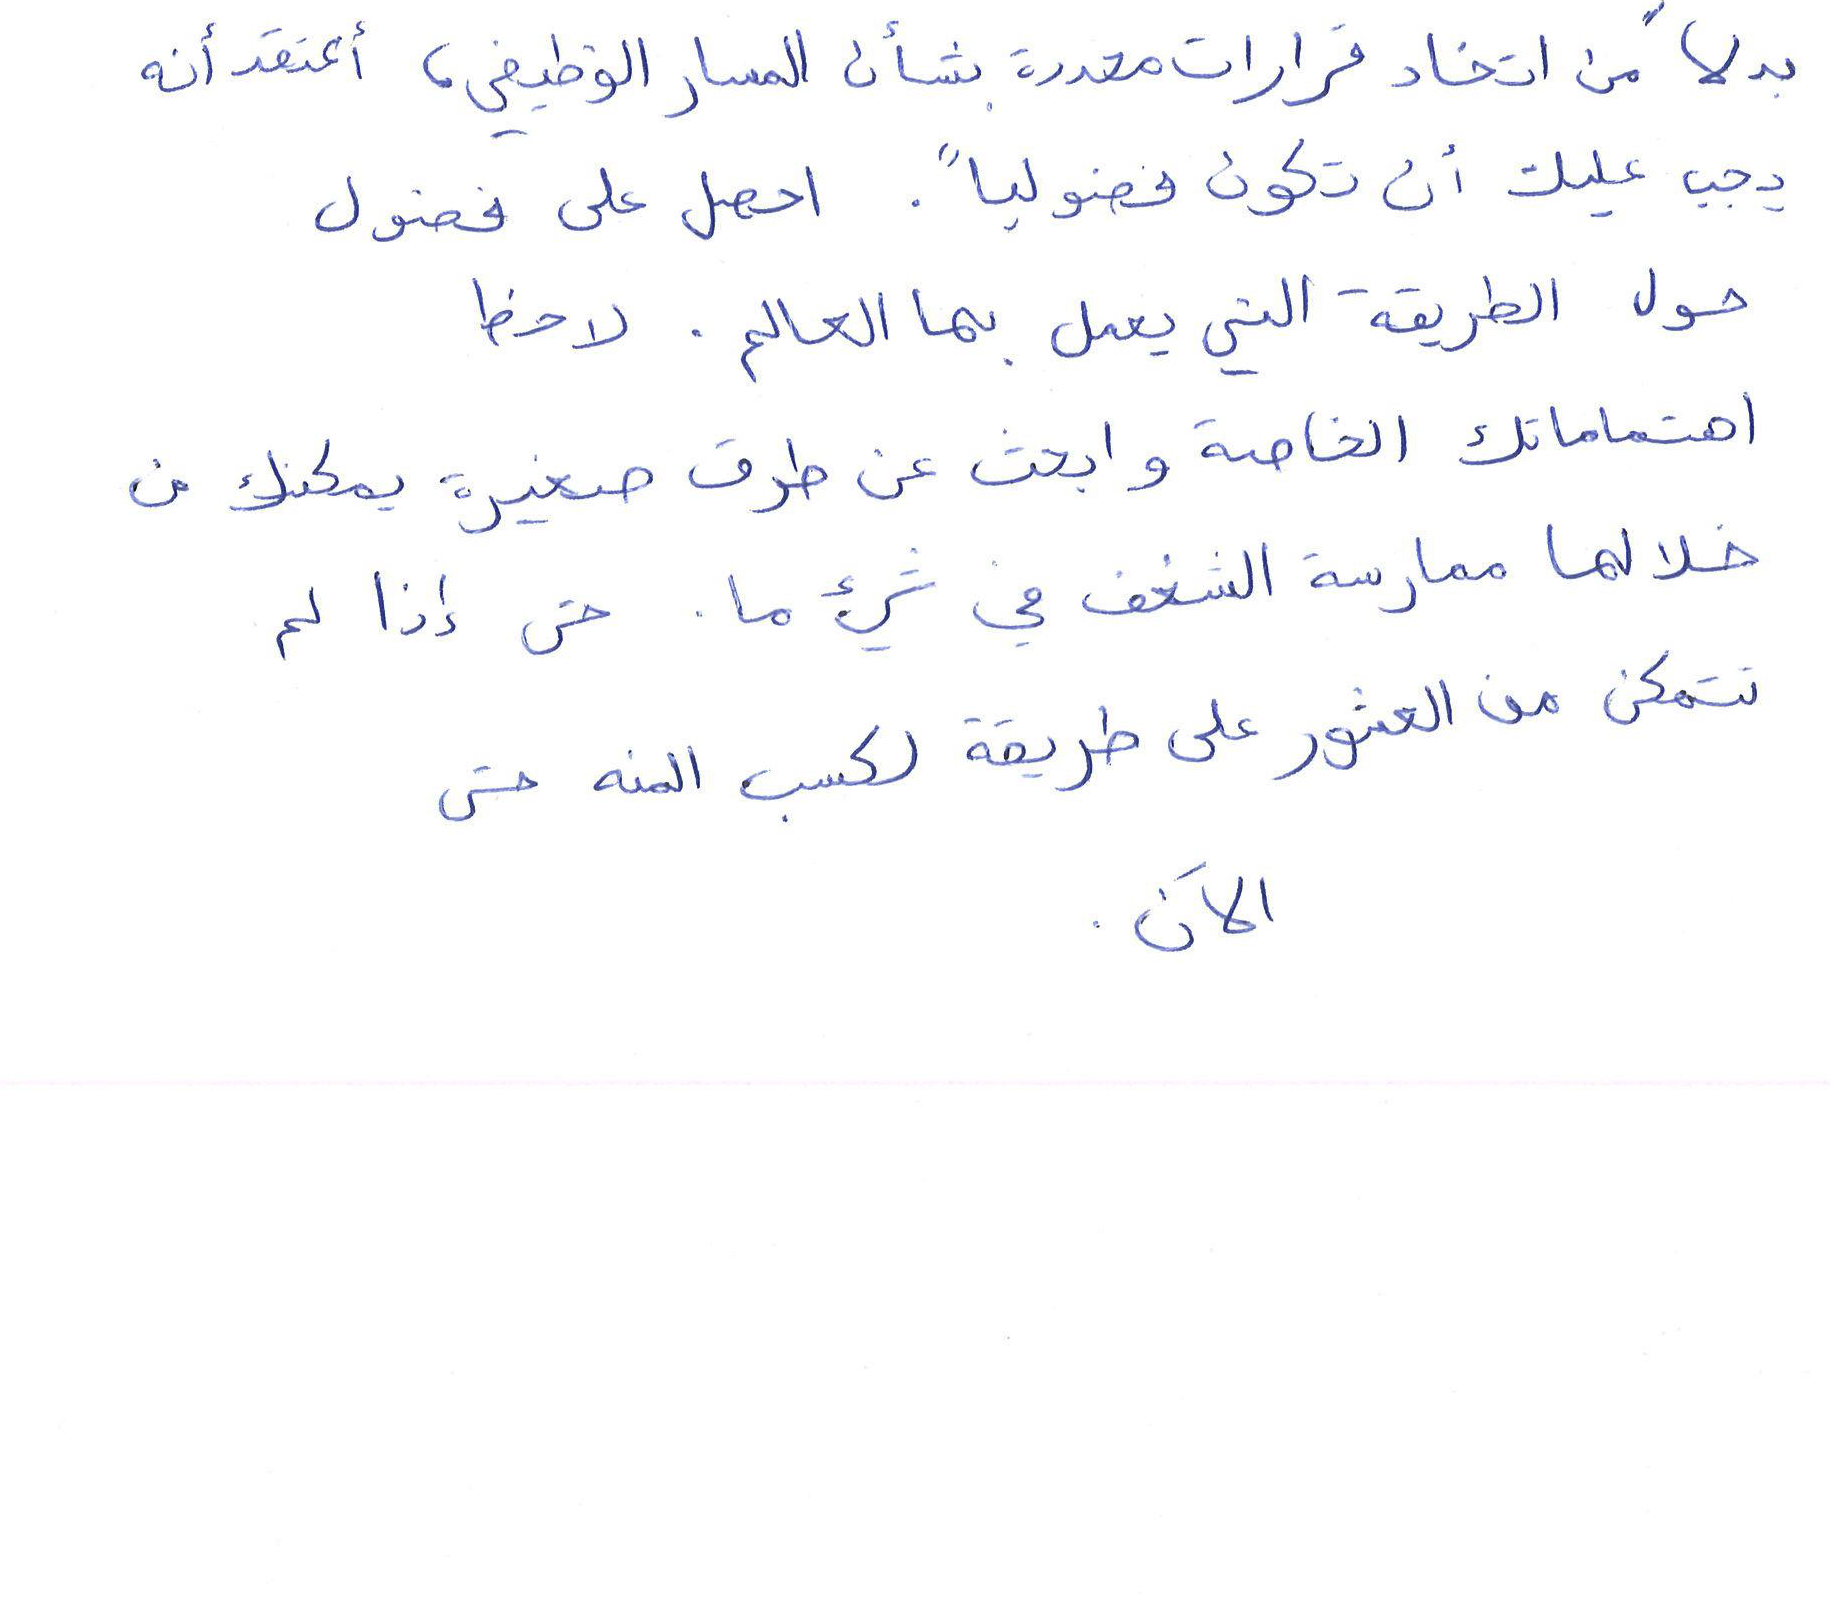 بدلاً من اتخاد قرارات متعددة بشأن المسار الوظيفي، أعتقد أنه
يجب عليك أن تكون فضولياً. احصل على فضول
حول الطريقة التي يعمل بها العالم. لاحظ
اهتماماتك الخاصة وابحث عن طرق صغيرة يمكنك من
خلالها ممارسة الشغف في شيء ما. حتى إذا لم
تتمكن من العثور على طريقة لكسب المنه حتى
الآن.